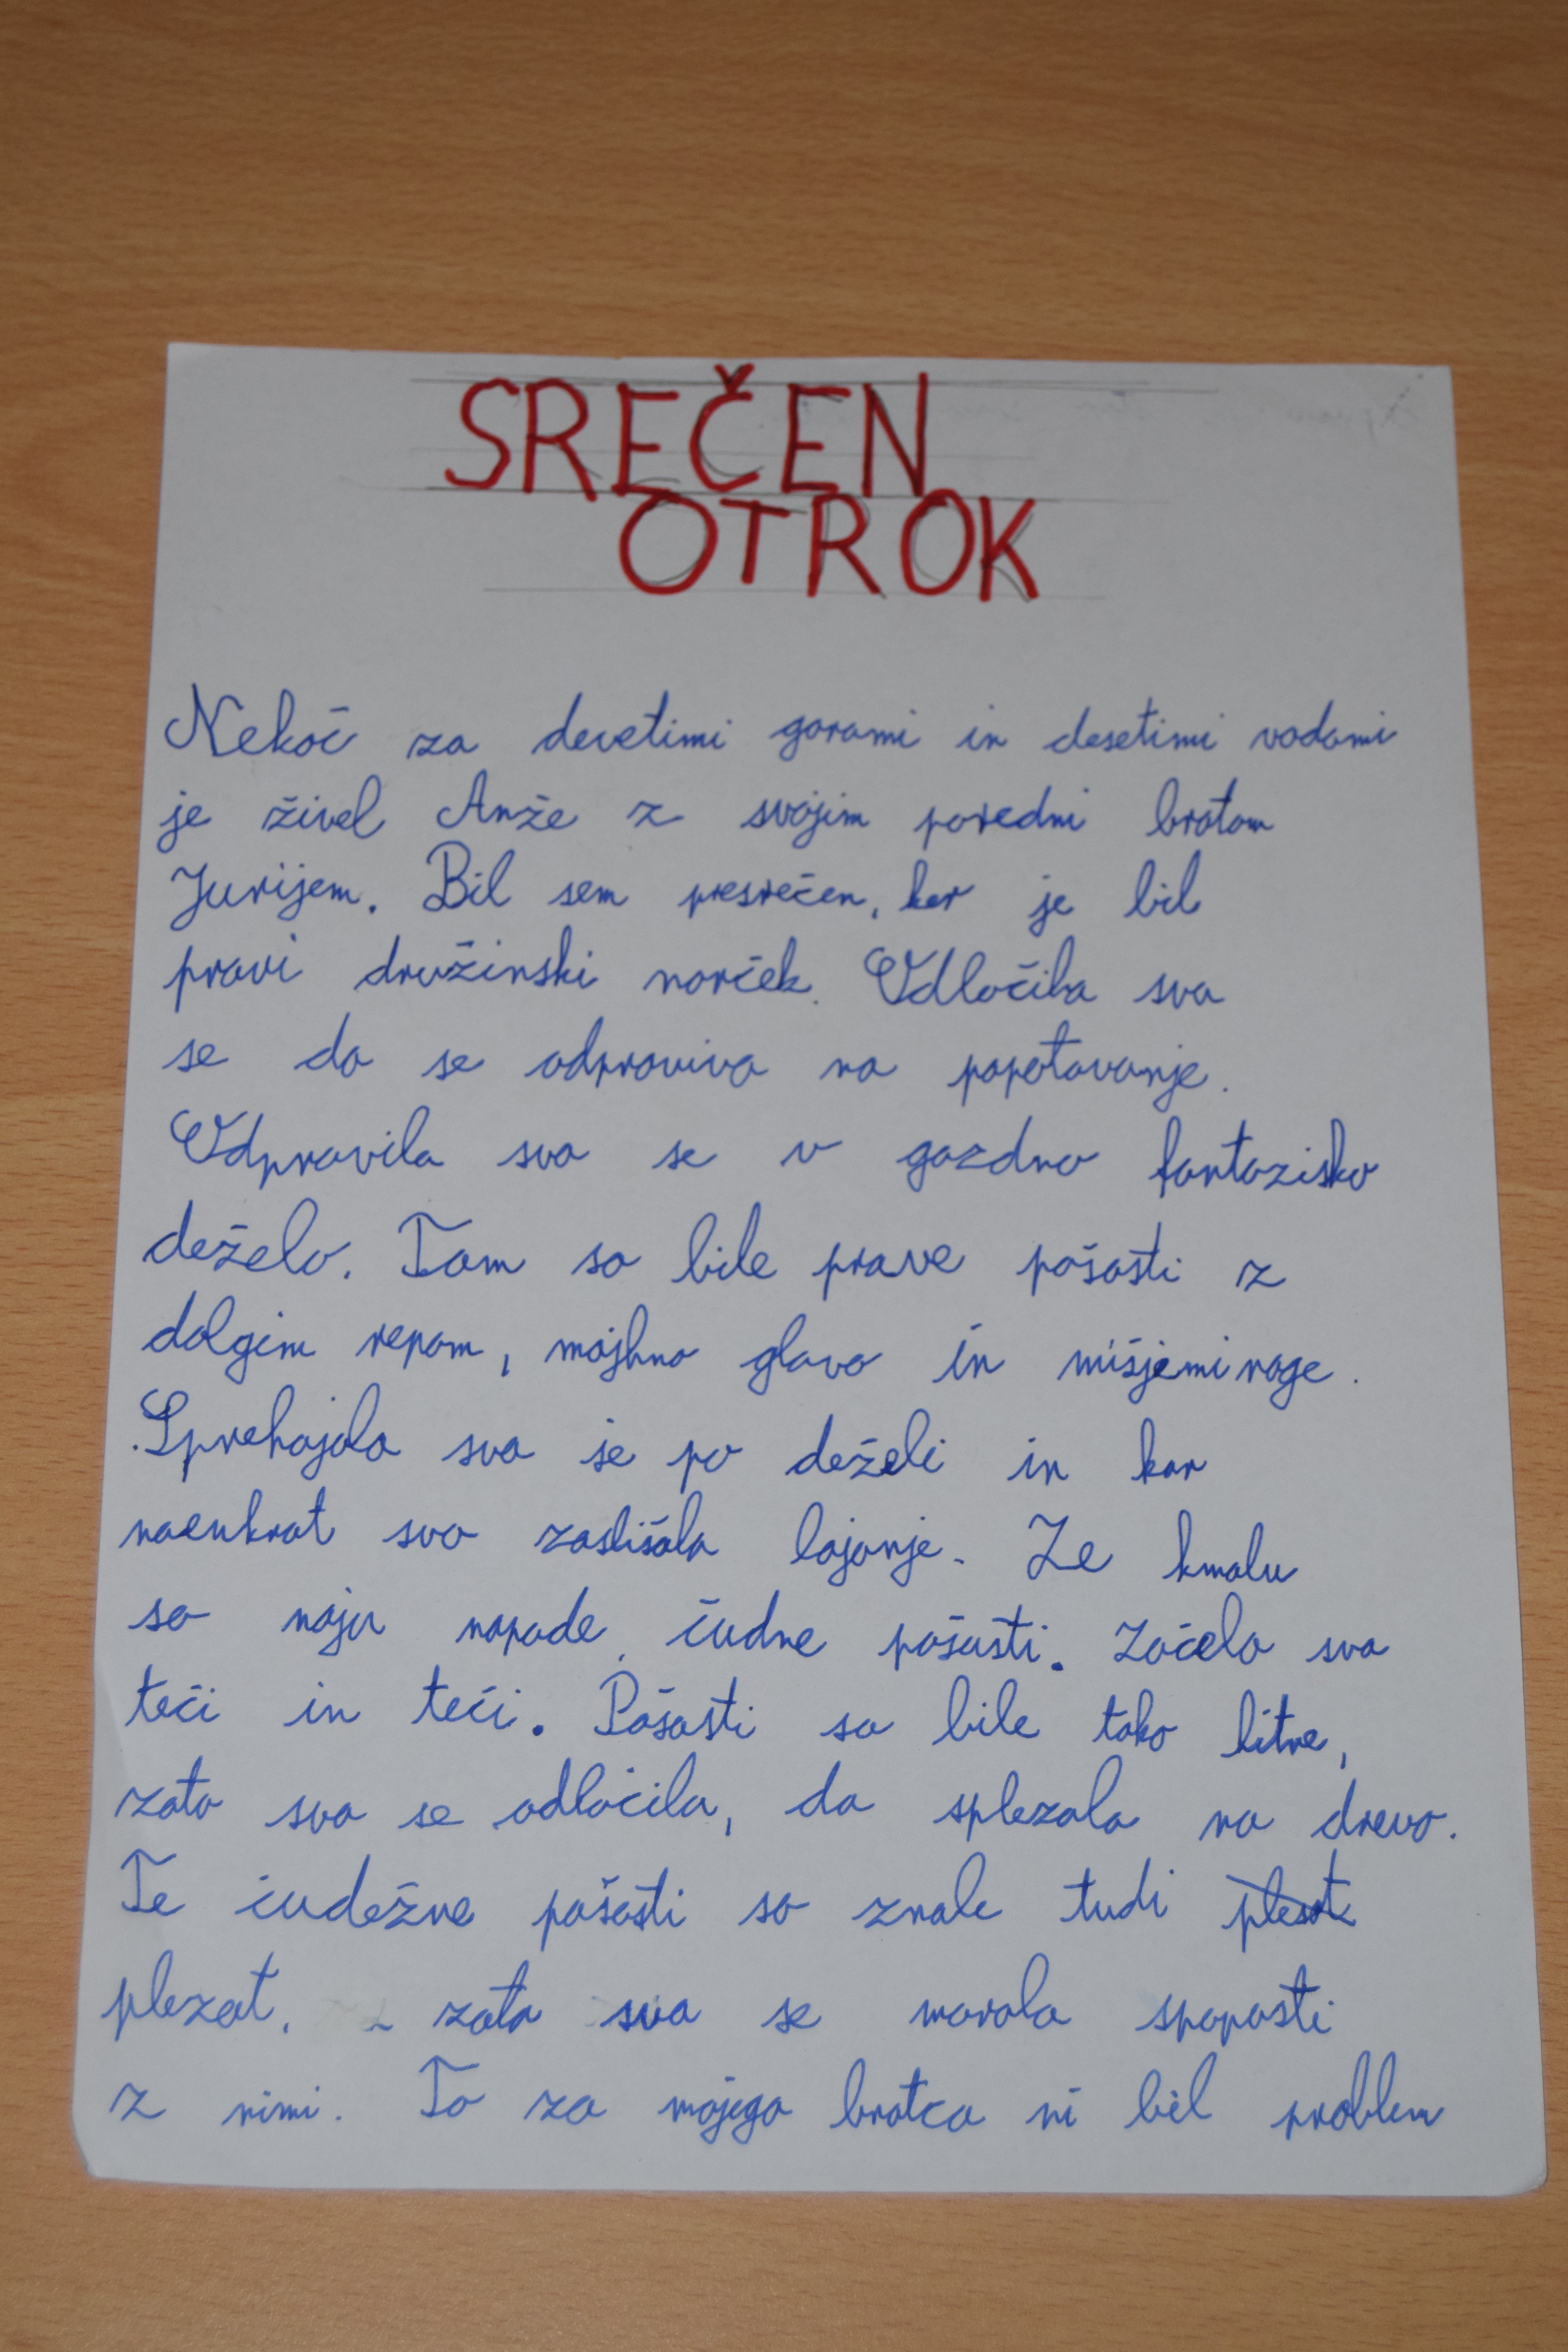 SREČEN
OTROK
Nekoč za devetimi gorami in desetimi vodami
je živel Anže z svojim poredni bratom
Jurijem. Bil sem presrečen, ker je bil
pravi družinski norček. Odločila sva
se da se odpraviva na popotovanje.
Odpravila sva se v gozdno fantazisko
deželo. Tam so bile prave pošasti z
dolgim repom, majhno glavo in mišjemi noge.
Sprehajala sva se po deželi in kar
naenkrat sva zaslišala lajanje. Ze kmalu
so naju napade čudne pošasti. Začela sva
teči in teči. Pošasti so bile tako hitre,
zato sva se odločila, da splezala na drevo.
Te čudežne pošasti so znale tudi plesat
plezat, zato sva se morala spopasti
z nimi. To za mojega bratca ni bil problem